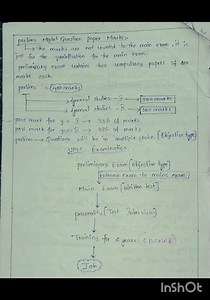 prelims Model Question paper Marks:-
→ the marks are not counted to the main exam, it is
just for the qualification for the main exam.
preliminary exam contains two compulsory papers of 200
marks each.
prelims → 400 marks
→ general studies - I → 200 marks
→ general studies - II → 200 marks
pass mark for g.s - II → 33% of marks
prelims → Questions will be in multiple choice [Objective type]
Examination
preliminary Exam [Objective type]
Main Exam [Written test]
personality [Test Interview]
Training for
Job
InShOt